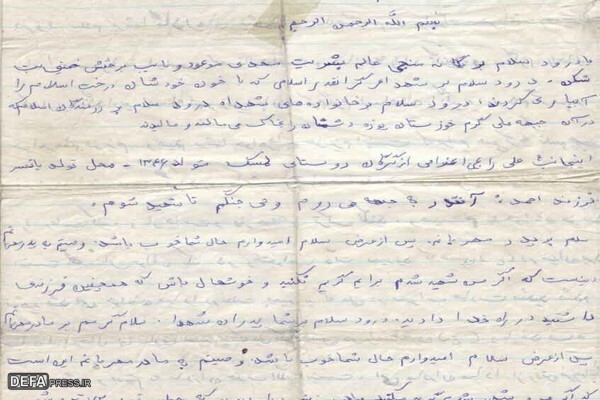 بسم الله الرحمن الرحیم
با درود و سلام بر یگانه منجی عالم بشریت مهدی موعود و نایب بر حقش خمینی بت
شکن - درود سلام بر شهدا گرانقدر اسلامی که با خون خودشان درخت اسلام را
آبیاری کردند، درود و سلام بر خانواده‌های شهدا، درود سلام بر رزمندگان اسلام که
در آن جبهه های گرم خوزستان پوزه دشمنان را بخاک می مالند و مالوند
اینجانب علی متولد ۱۳۴۶ - محل تولد بابلسر
فرزند احمد: آنقدر به جبهه می روم و می جنگم تا شهید شوم.
سلام بر پدر مهربانم پس از عرض سلام امیدوارم حال شما خوب باشد. وصیتم به پدر مهربانم
اینست که اگر من شهید شدم برایم گریه نکنید و خوشحال باش که همچنین فرزندی
داشتید در راه خدا دادید. درود سلام بر شما پدران شهدا. سلام گرم بر مادر مهربانم
پس از عرض سلام امیدوارم حال شما خوب باشد. وصیتم به مادر مهربانم این است
که اگر من شهید شدم
DEFAPRESS.IR